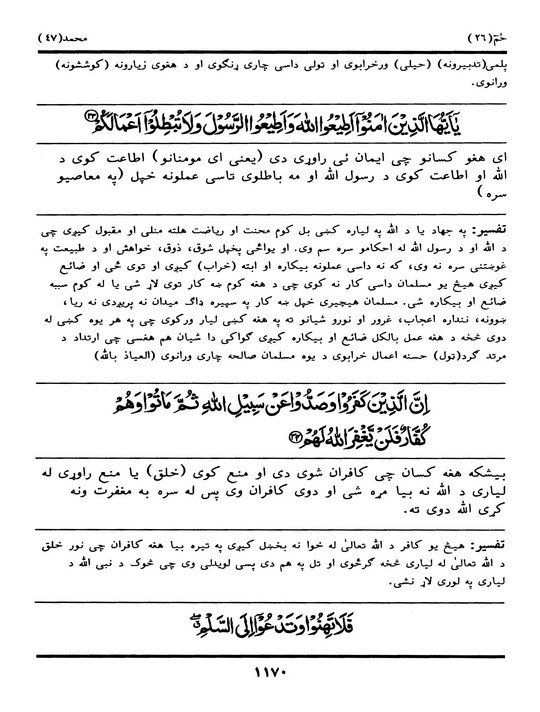 حٰمٓ (٢٦) محمد (٤٧)
پلمی(تدبیرونه) (حیلی) ورخرابوی او تولی داسی چاری ړنګوی او د هغوی زیارونه (کوششونه)
ورانوی.
يٰۤاَيُّهَا الَّذِيْنَ اٰمَنُوْۤا اَطِيْعُوا اللّٰهَ وَاَطِيْعُوا الرَّسُوْلَ وَلَا تُبْطِلُوْۤا اَعْمَالَكُمْ ۝۳۳
ای هغو کسانو چی ایمان ئی راوړی دی (یعنی ای مومنانو) اطاعت کوی د
الله او اطاعت کوی د رسول الله او مه باطلوی تاسی عملونه خپل (په معاصیو
سره)
تفسیر: په جهاد یا د الله په لیاره کښی بل کوم محنت او ریاضت هلته منلی او مقبول کیږی چی
د الله او د رسول الله له احکامو سره سم وی. او یوائحی پخپل شوق، ذوق، خواهش او د طبیعت په
غوښتنی سره نه وی، که نه داسی عملونه بیکاره او ابته (خراب) کیږی او توی ځی او ضائع
کیږی هیڅ یو مسلمان داسی کار نه کوی چی د هغه کوم ښه کار توی لاړ شی یا له کوم سببه
ضائع او بیکاره شی. مسلمان هیچیری خپل ښه کار په سپیره ډاګ میدان نه پریږدی نه ریا،
ښوونه، ننداره اعجاب، غرور او نورو شیانو ته په هغه کښی لیار ورکوی چی په هر یوه کښی له
دوی څخه د هغه عمل بالکل ضائع او بیکاره کیږی ګواکی دا شیان هم هغسی چی ارتداد د
مرتد ګرد(تول) حسنه اعمال خرابوی د یوه مسلمان صالحه چاری ورانوی (العیاذ بالله)
اِنَّ الَّذِيْنَ كَفَرُوْا وَصَدُّوْا عَنْ سَبِيْلِ اللّٰهِ ثُمَّ مَاتُوْا وَهُمْ
كُفَّارٌ فَلَنْ يَّغْفِرَ اللّٰهُ لَهُمْ ۝۳۴
بیشکه هغه کسان چی کافران شوی دی او منع کوی (خلق) یا منع راوړی له
لیاری د الله نه بیا مړه شی او دوی کافران وی پس له سره به مغفرت ونه
کړی الله دوی ته.
تفسیر: هیڅ یو کافر د الله تعالیٰ له خوا نه بخښل کیږی په تیره بیا هغه کافران چی نور خلق
د الله تعالیٰ له لیاری څخه ګرځوی او تل په هم دی پسی لویدلی وی چی څوک د نبی الله د
لیاری په لوری لاړ نشی.
فَلَا تَهِنُوْا وَتَدْعُوْۤا اِلَى السَّلْمِ ۖ
١١٧٠